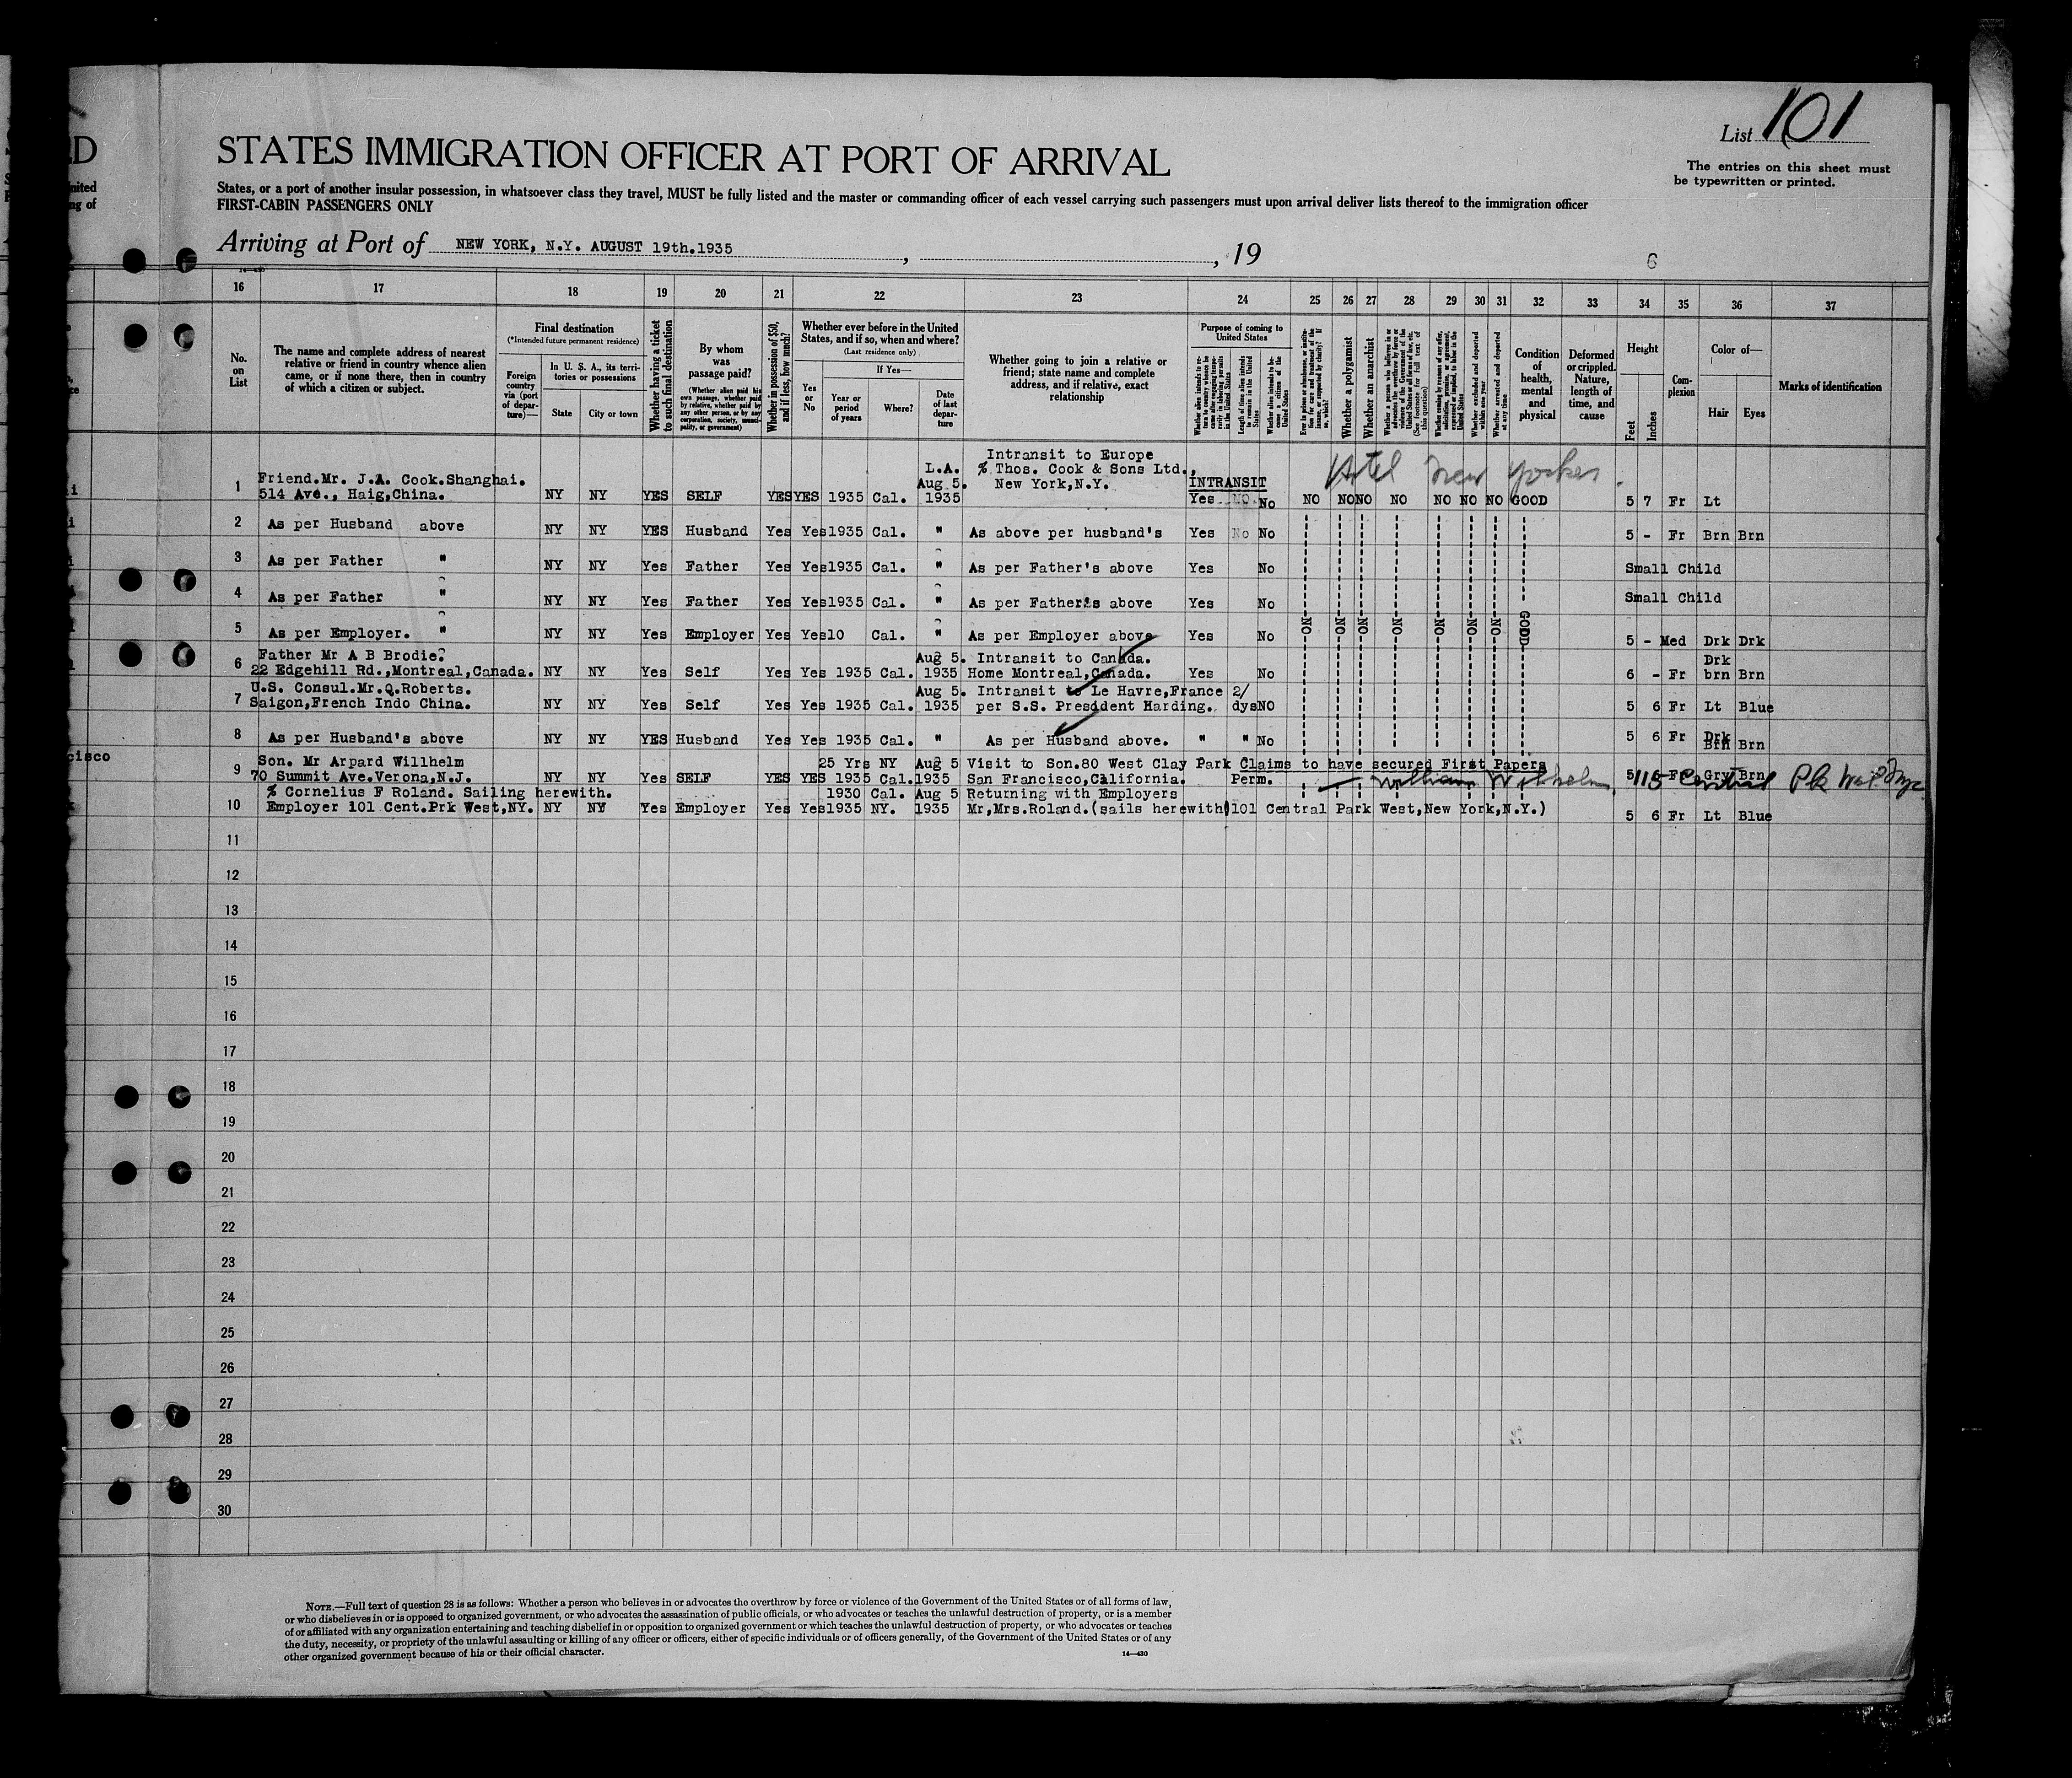 List 101
The entries on this sheet must
be typewritten or printed.
STATES IMMIGRATION OFFICER AT PORT OF ARRIVAL
States, or a port of another insular possession, in whatsoever class they travel, MUST be fully listed and the master or commanding officer of each vessel carrying such passengers must upon arrival deliver lists thereof to the immigration officer
FIRST-CABIN PASSENGERS ONLY
Arriving at Port of NEW YORK, N.Y. AUGUST 19th.1935, , 19
6
16 17 18 19 20 21 22 23 24 25 26 27 28 29 30 31 32 33 34 35 36 37
No. on List
The name and complete address of nearest relative or friend in country whence alien came, or if none there, then in country of which a citizen or subject.
Final destination
(*Intended future permanent residence)
Foreign country via (port of departure)—
In U. S. A., its territories or possessions
State
City or town
Whether having a ticket to such final destination
By whom was passage paid?
(Whether alien paid his own passage, whether paid by relative, whether paid by any other person, or by any corporation, society, municipality, or government)
Whether in possession of $50, and if less, how much?
Whether ever before in the United States, and if so, when and where?
(Last residence only)
Yes or No
If Yes—
Year or period of years
Where?
Date of last departure
Whether going to join a relative or friend; state name and complete address, and if relative, exact relationship
Purpose of coming to United States
Whether a polygamist
Whether an anarchist
Condition of health, mental and physical
Deformed or crippled. Nature, length of time, and cause
Height
Feet
Inches
Complexion
Color of—
Hair
Eyes
Marks of identification
Hotel New Yorker.
Intransit to Europe
Friend.Mr. J.A. Cook.Shanghai. L.A. % Thos. Cook & Sons Ltd., INTRANSIT
1 514 Ave., Haig,China. NY NY YES SELF YES YES 1935 Cal. Aug 5. 1935 New York,N.Y. Yes NO No NO NO NO NO NO NO NO GOOD 5 7 Fr Lt
2 As per Husband above NY NY YES Husband Yes Yes 1935 Cal. " As above per husband's Yes No No 5 - Fr Brn Brn
3 As per Father " NY NY Yes Father Yes Yes 1935 Cal. " As per Father's above Yes No Small Child
4 As per Father " NY NY Yes Father Yes Yes 1935 Cal. " As per Father's above Yes No Small Child
NO NO NO NO NO NO NO GOOD
5 As per Employer. " NY NY Yes Employer Yes Yes 10 Cal. " As per Employer above Yes No 5 - Med Drk Drk
Father Mr A B Brodie. Aug 5. Intransit to Canada. Drk
6 22 Edgehill Rd.,Montreal,Canada. NY NY Yes Self Yes Yes 1935 Cal. 1935 Home Montreal,Canada. Yes No 6 - Fr brn Brn
U.S. Consul.Mr.Q.Roberts. Aug 5. Intransit to Le Havre,France 2/
7 Saigon,French Indo China. NY NY Yes Self Yes Yes 1935 Cal. 1935 per S.S. President Harding. dys NO 5 6 Fr Lt Blue
8 As per Husband's above NY NY YES Husband Yes Yes 1935 Cal. " As per Husband above. " " No 5 6 Fr Drk Brn Brn
Son. Mr Arpard Willhelm 25 Yrs NY Aug 5 Visit to Son.80 West Clay Park Claims to have secured First Papers
9 70 Summit Ave.Verona,N.J. NY NY Yes SELF YES YES 1935 Cal. 1935 San Francisco,California. Perm. William Wilhelm, 115 Central Pk West 5 Fr Gry Brn
% Cornelius F Roland. Sailing herewith. 1930 Cal. Aug 5 Returning with Employers
10 Employer 101 Cent.Prk West,NY. NY NY Yes Employer Yes Yes 1935 NY. 1935 Mr,Mrs.Roland.(sails herewith)101 Central Park West,New York,N.Y.) 5 6 Fr Lt Blue
11
12
13
14
15
16
17
18
19
20
21
22
23
24
25
26
27
28
29
30
NOTE.—Full text of question 28 is as follows: Whether a person who believes in or advocates the overthrow by force or violence of the Government of the United States or of all forms of law,
or who disbelieves in or is opposed to organized government, or who advocates the assassination of public officials, or who advocates or teaches the unlawful destruction of property, or is a member
of or affiliated with any organization entertaining and teaching disbelief in or opposition to organized government or which teaches the unlawful destruction of property, or who advocates or teaches
the duty, necessity, or propriety of the unlawful assaulting or killing of any officer or officers, either of specific individuals or of officers generally, of the Government of the United States or of any
other organized government because of his or their official character.
14—430